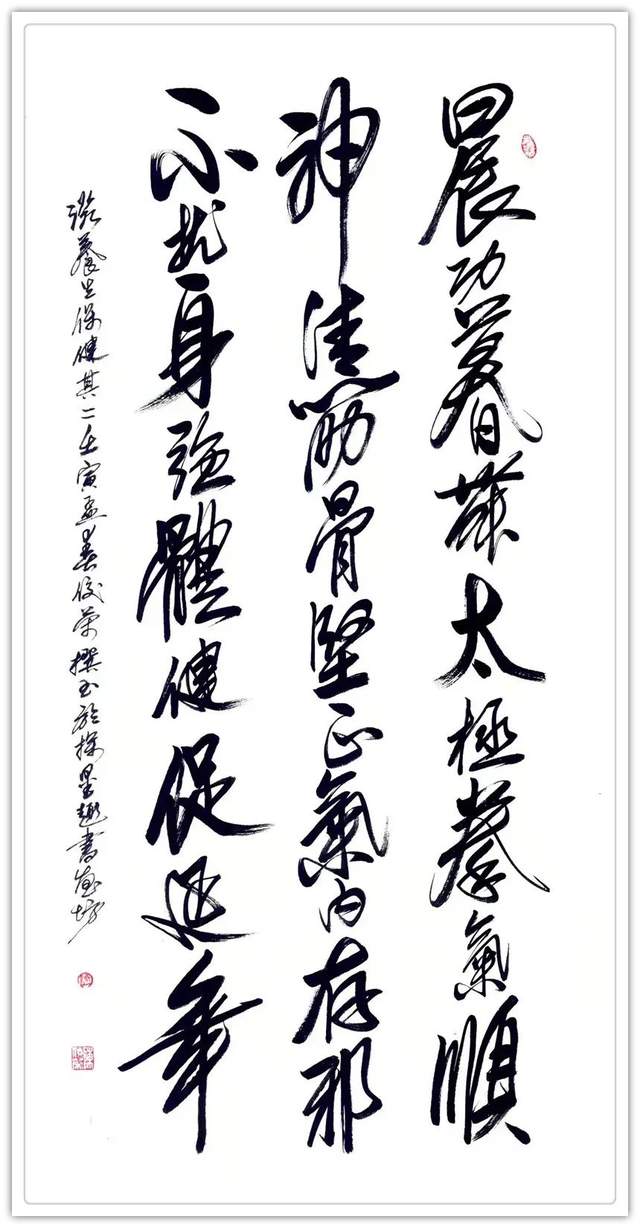 晨功暮舞太極拳氣順
神清筋骨堅正氣内存邪
不扰身強體健促延年
養生保健其二壬寅孟春俊荣撰书於探墨趣書画坊